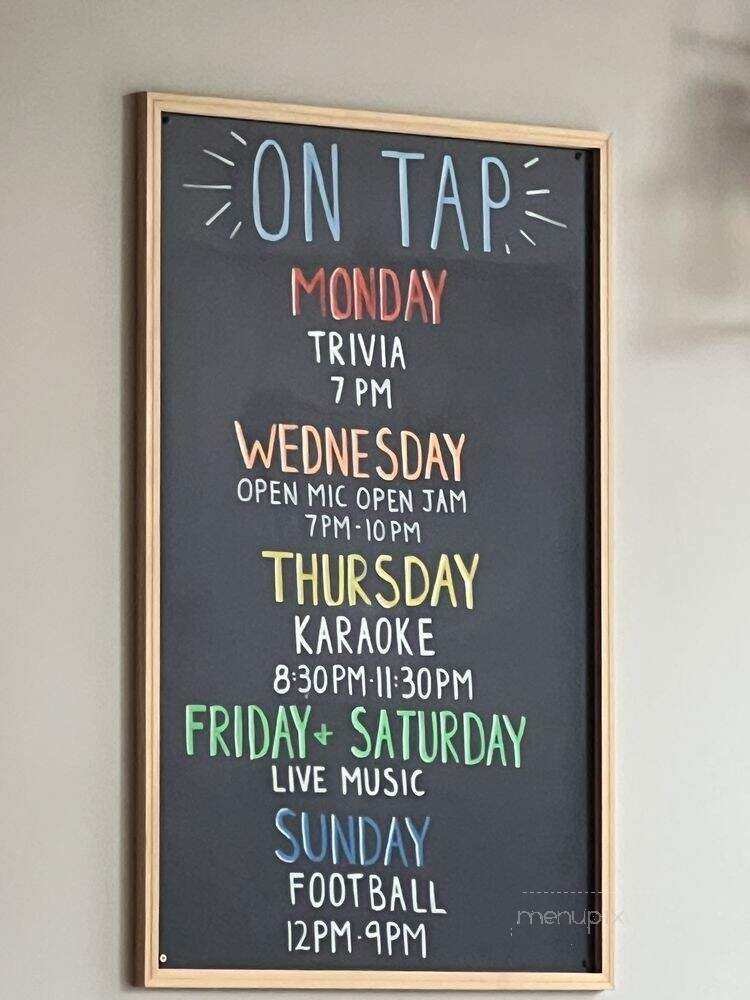 ON TAP
MONDAY
TRIVIA
7 PM
WEDNESDAY
OPEN MIC OPEN JAM
7PM-10PM
THURSDAY
KARAOKE
8:30PM-11:30PM
FRIDAY + SATURDAY
LIVE MUSIC
SUNDAY
FOOTBALL
12PM-9PM
menupix